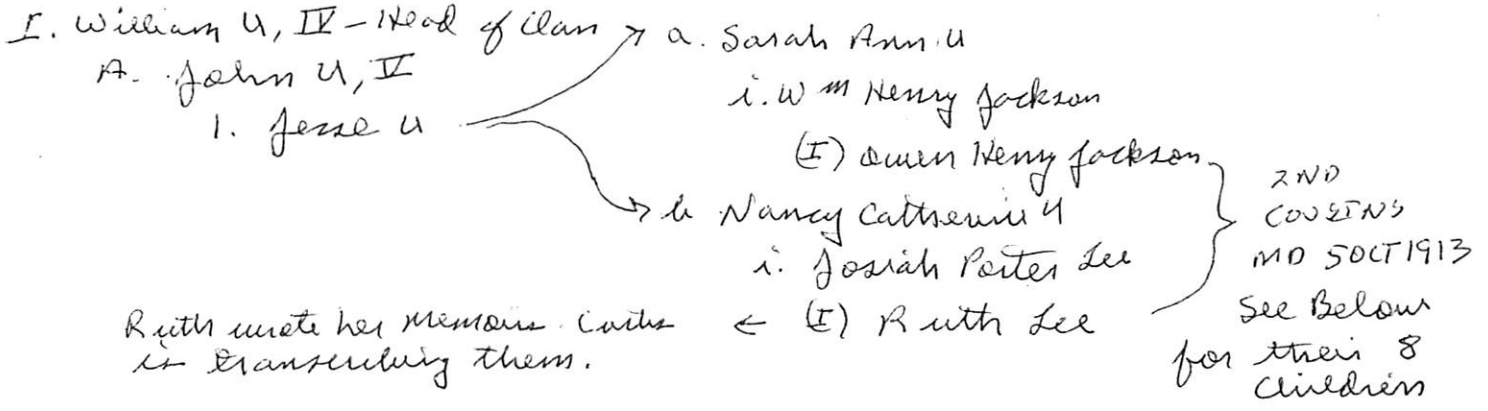 I. William U, IV - Head of Clan
A. John U, V
1. Jesse U
a. Sarah Ann U
i. Wm Henry Jackson
(I) Owen Henry Jackson
b Nancy Catherine U
i. Josiah Porter Lee
(I) Ruth Lee
2ND
COUSINS
MD 5OCT1913
See Below
for their 8
children
Ruth wrote her memoirs. Curtis ←
is transcribing them.